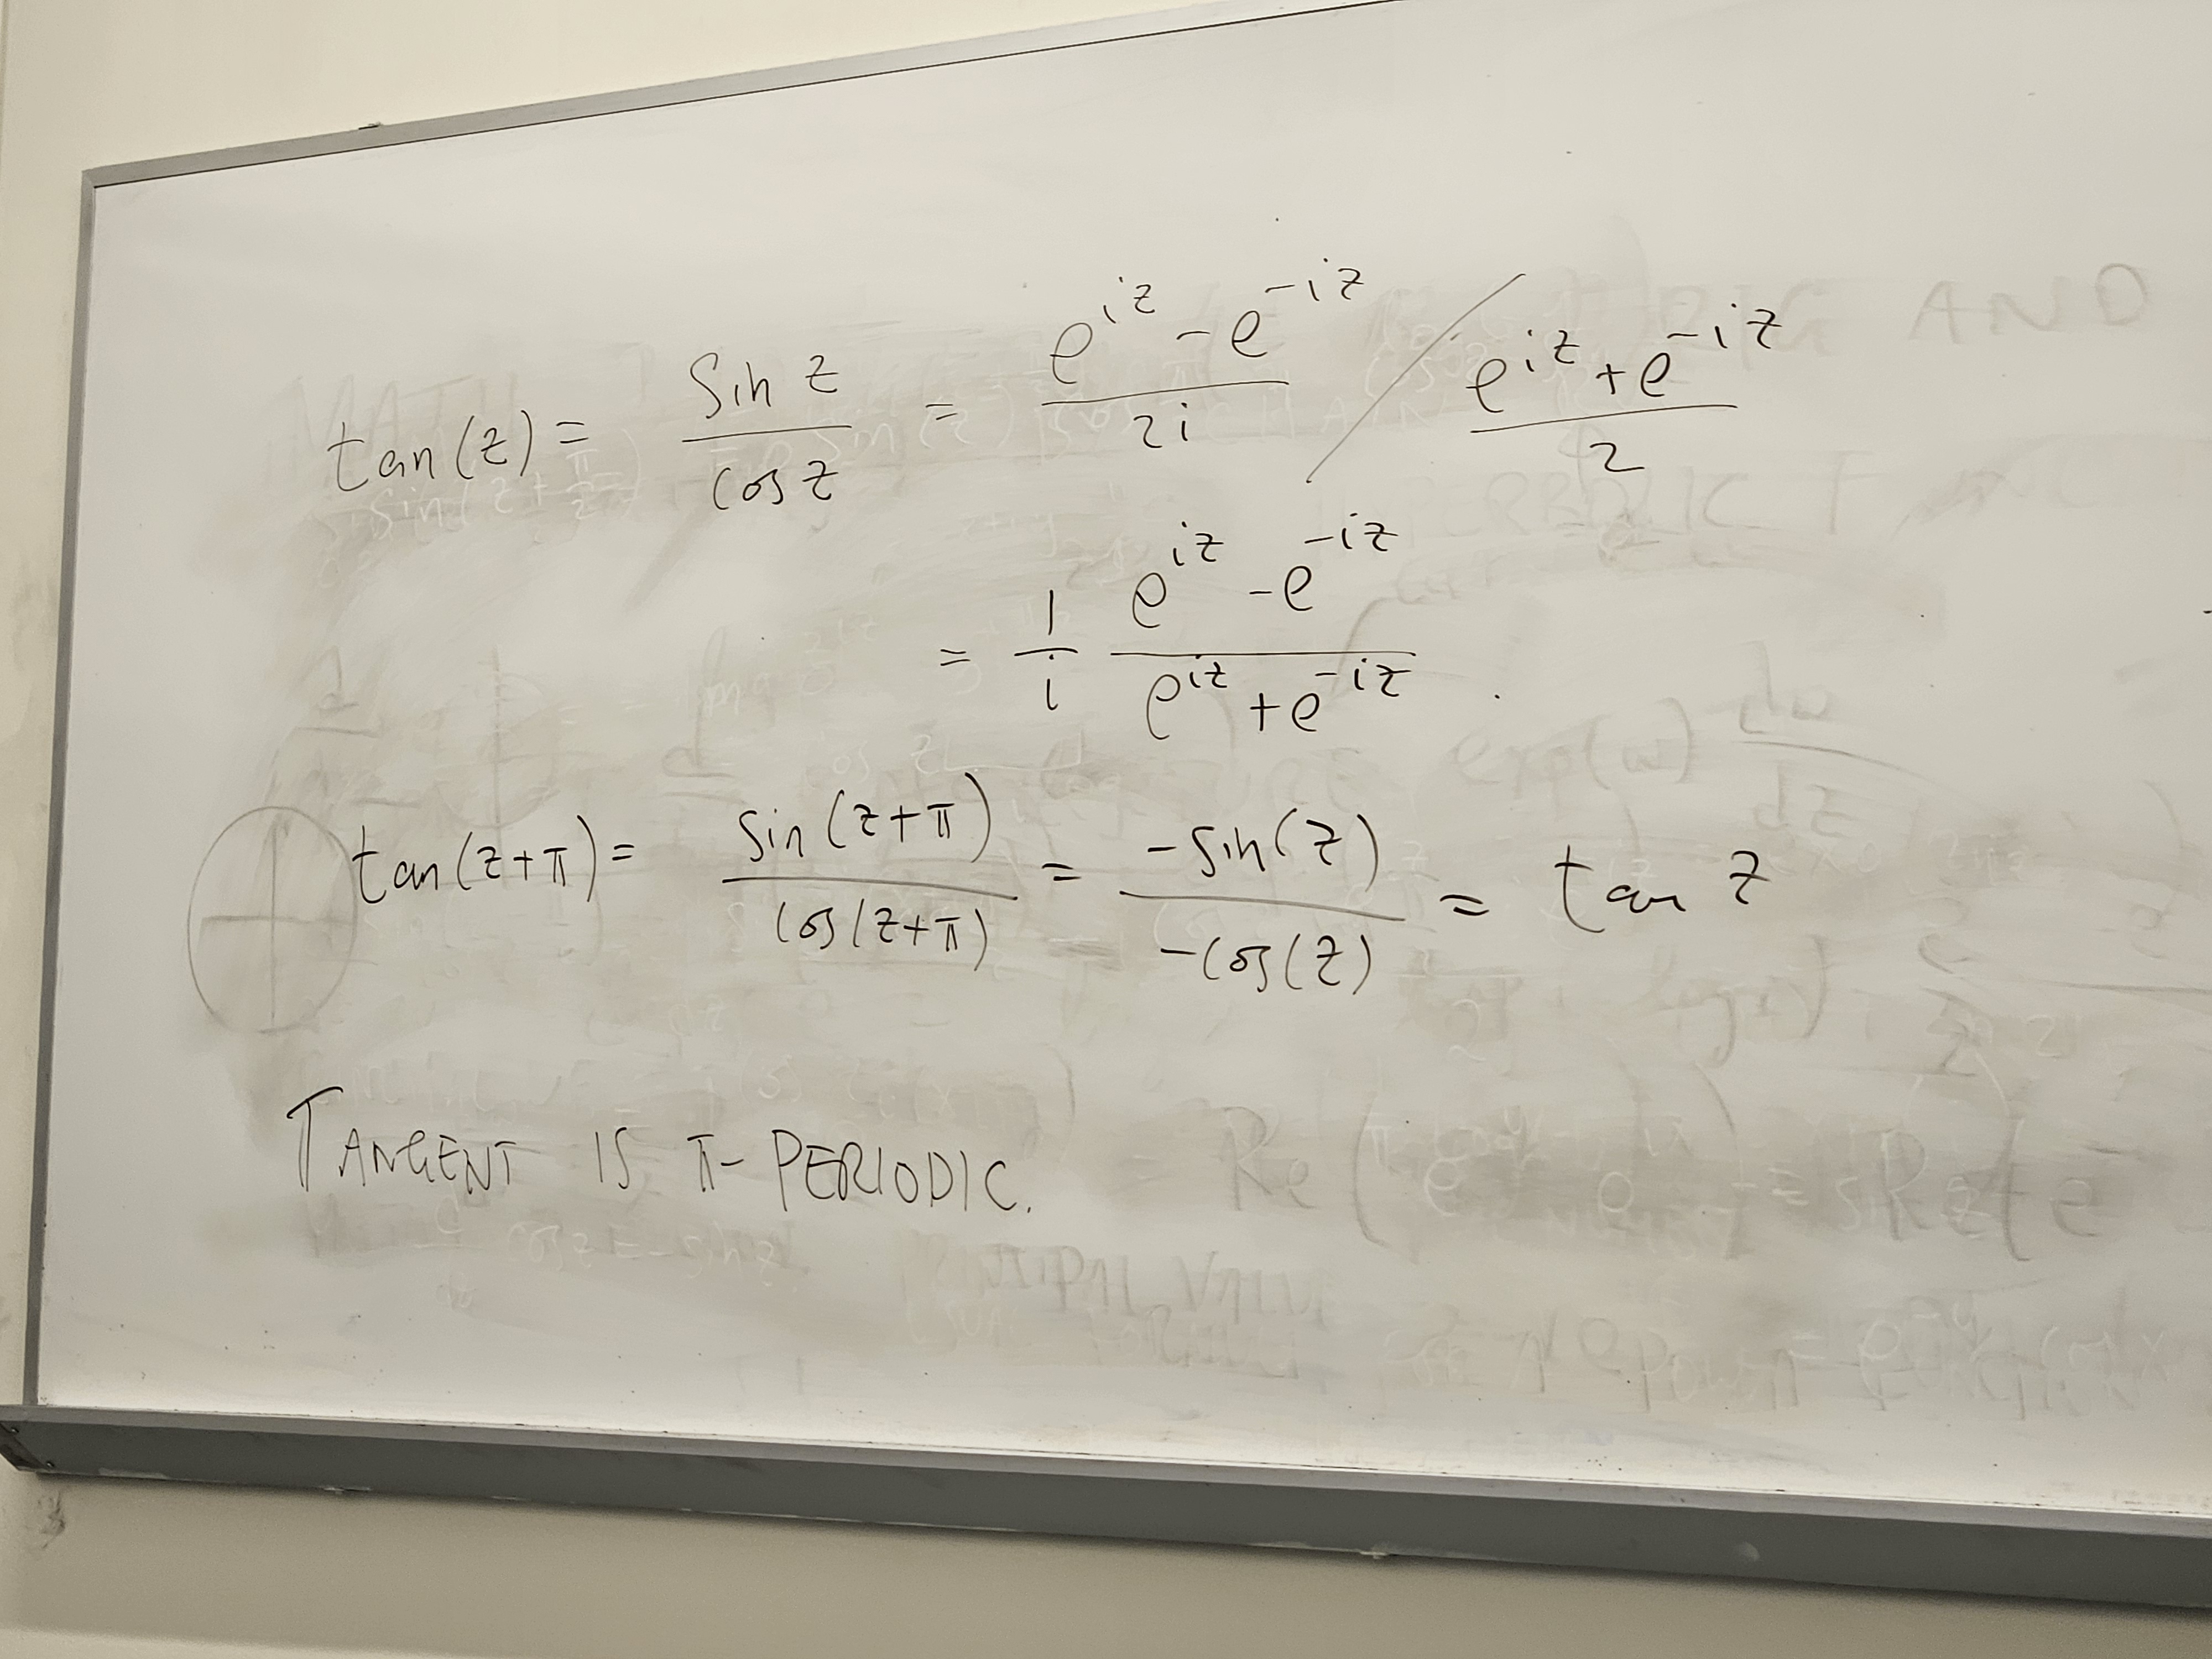 tan(z) = sin z / cos z = (e^{iz} - e^{-iz}) / 2i / (e^{iz} + e^{-iz}) / 2
= 1/i (e^{iz} - e^{-iz}) / (e^{iz} + e^{-iz}) .
tan(z+π) = sin(z+π) / cos(z+π) = -sin(z) / -cos(z) = tan z
TANGENT IS π-PERIODIC.